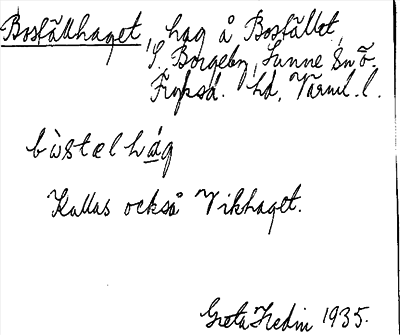 Boställhaget, hag å Bostället,
S. Borgeby, Sunne sn ö.
Fryksd. hd, Värml. l.
bùstælhág
Kallas också Vikhaget.
Greta Hedin 1935.